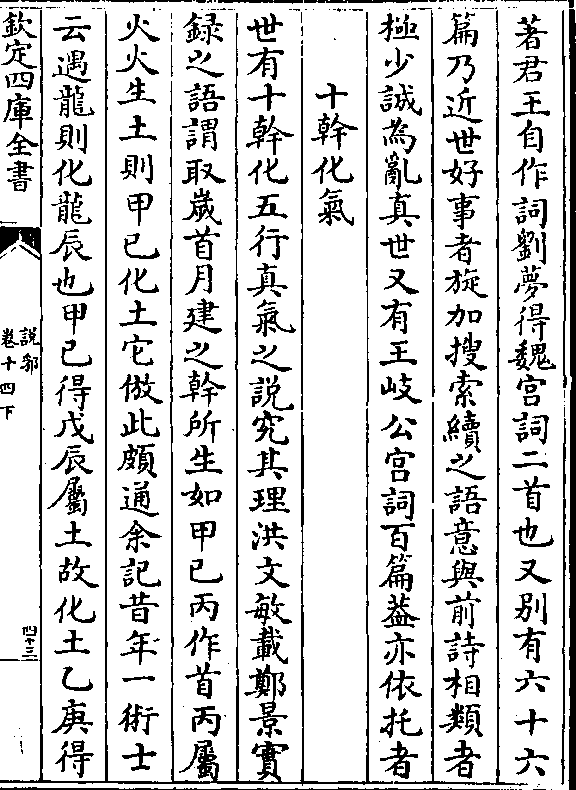 著君王自作詞劉夢得魏宫詞二首也又别有六十六
篇乃近世好事者旋加搜索續之語意與前詩相類者
極少誠為亂真世又有王岐公宫詞百篇葢亦依托者
十幹化氣
世有十幹化五行真氣之説究其理洪文敏載鄭景實
録之語謂取嵗首月建之幹所生如甲已丙作首丙屬
火火生土則甲已化土它倣此頗通余記昔年一術士
云遇龍則化龍辰也甲已得戊辰屬土故化土乙庚得
欽定四庫全書
説郛
卷十四下
四十三